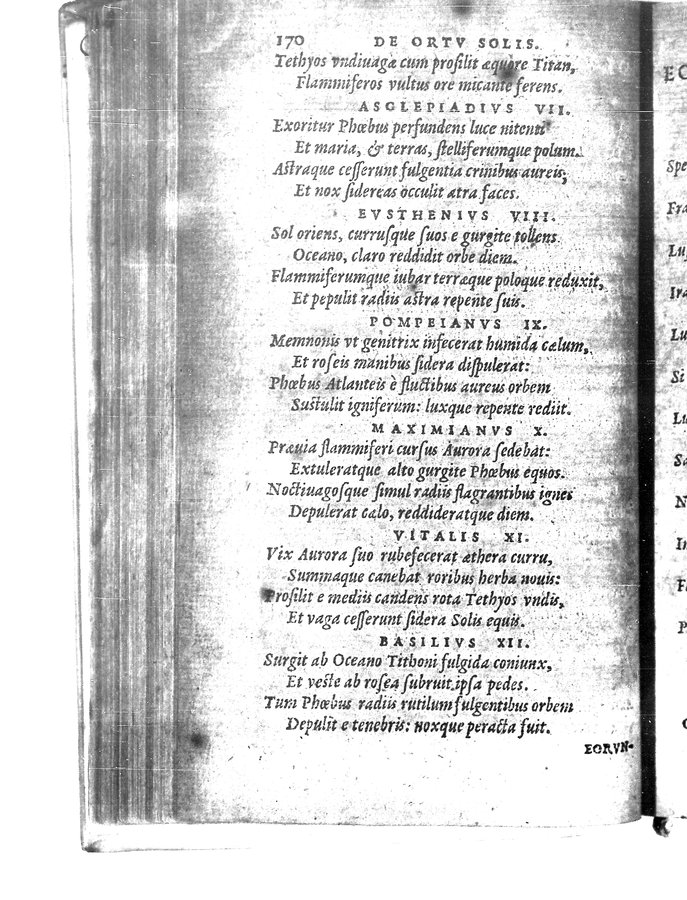 170 DE ORTV SOLIS.
Tethyos vndiuagæ cum proſilit æquore Titan,
Flammiferos vultus ore micante ferens.
ASCLEPIADIVS VII.
Exoritur Phœbus perfundens luce nitenti
Et maria, & terras, ſtelliferumque polum.
Aſtraque ceſſerunt fulgentia crinibus aureis,
Et nox ſidereas occulit atra faces.
EVSTHENIVS VIII.
Sol oriens, curruſque ſuos e gurgite tollens
Oceano, claro reddidit orbe diem.
Flammiferumque iubar terræque poloque reduxit,
Et pepulit radiis aſtra repente ſuis.
POMPEIANVS IX.
Memnonis vt genitrix infecerat humida cælum,
Et roſeis manibus ſidera diſpulerat:
Phœbus Atlanteis è fluctibus aureus orbem
Suſtulit igniferum: luxque repente rediit.
MAXIMIANVS X.
Præuia flammiferi curſus Aurora ſedebat:
Extuleratque alto gurgite Phœbus equos.
Noctiuagoſque ſimul radiis flagrantibus ignes
Depulerat cælo, reddideratque diem.
VITALIS XI.
Vix Aurora ſuo rubefecerat æthera curru,
Summaque canebat roribus herba nouis:
Proſilit e mediis candens rota Tethyos vndis,
Et vaga ceſſerunt ſidera Solis equis.
BASILIVS XII.
Surgit ab Oceano Tithoni fulgida coniunx,
Et veſte ab roſea ſubruit ipſa pedes.
Tum Phœbus radiis rutilum fulgentibus orbem
Depulit e tenebris: noxque peracta fuit.
EORVN-
EO
Spe
Fra
Lu
Ira
Lu
Si
Lu
Sa
N
In
F
P